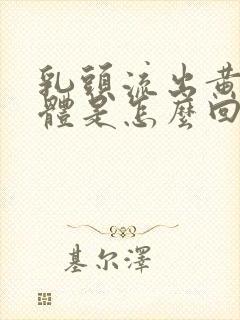 乳頭流出黃
體是怎麼回
基尔澤